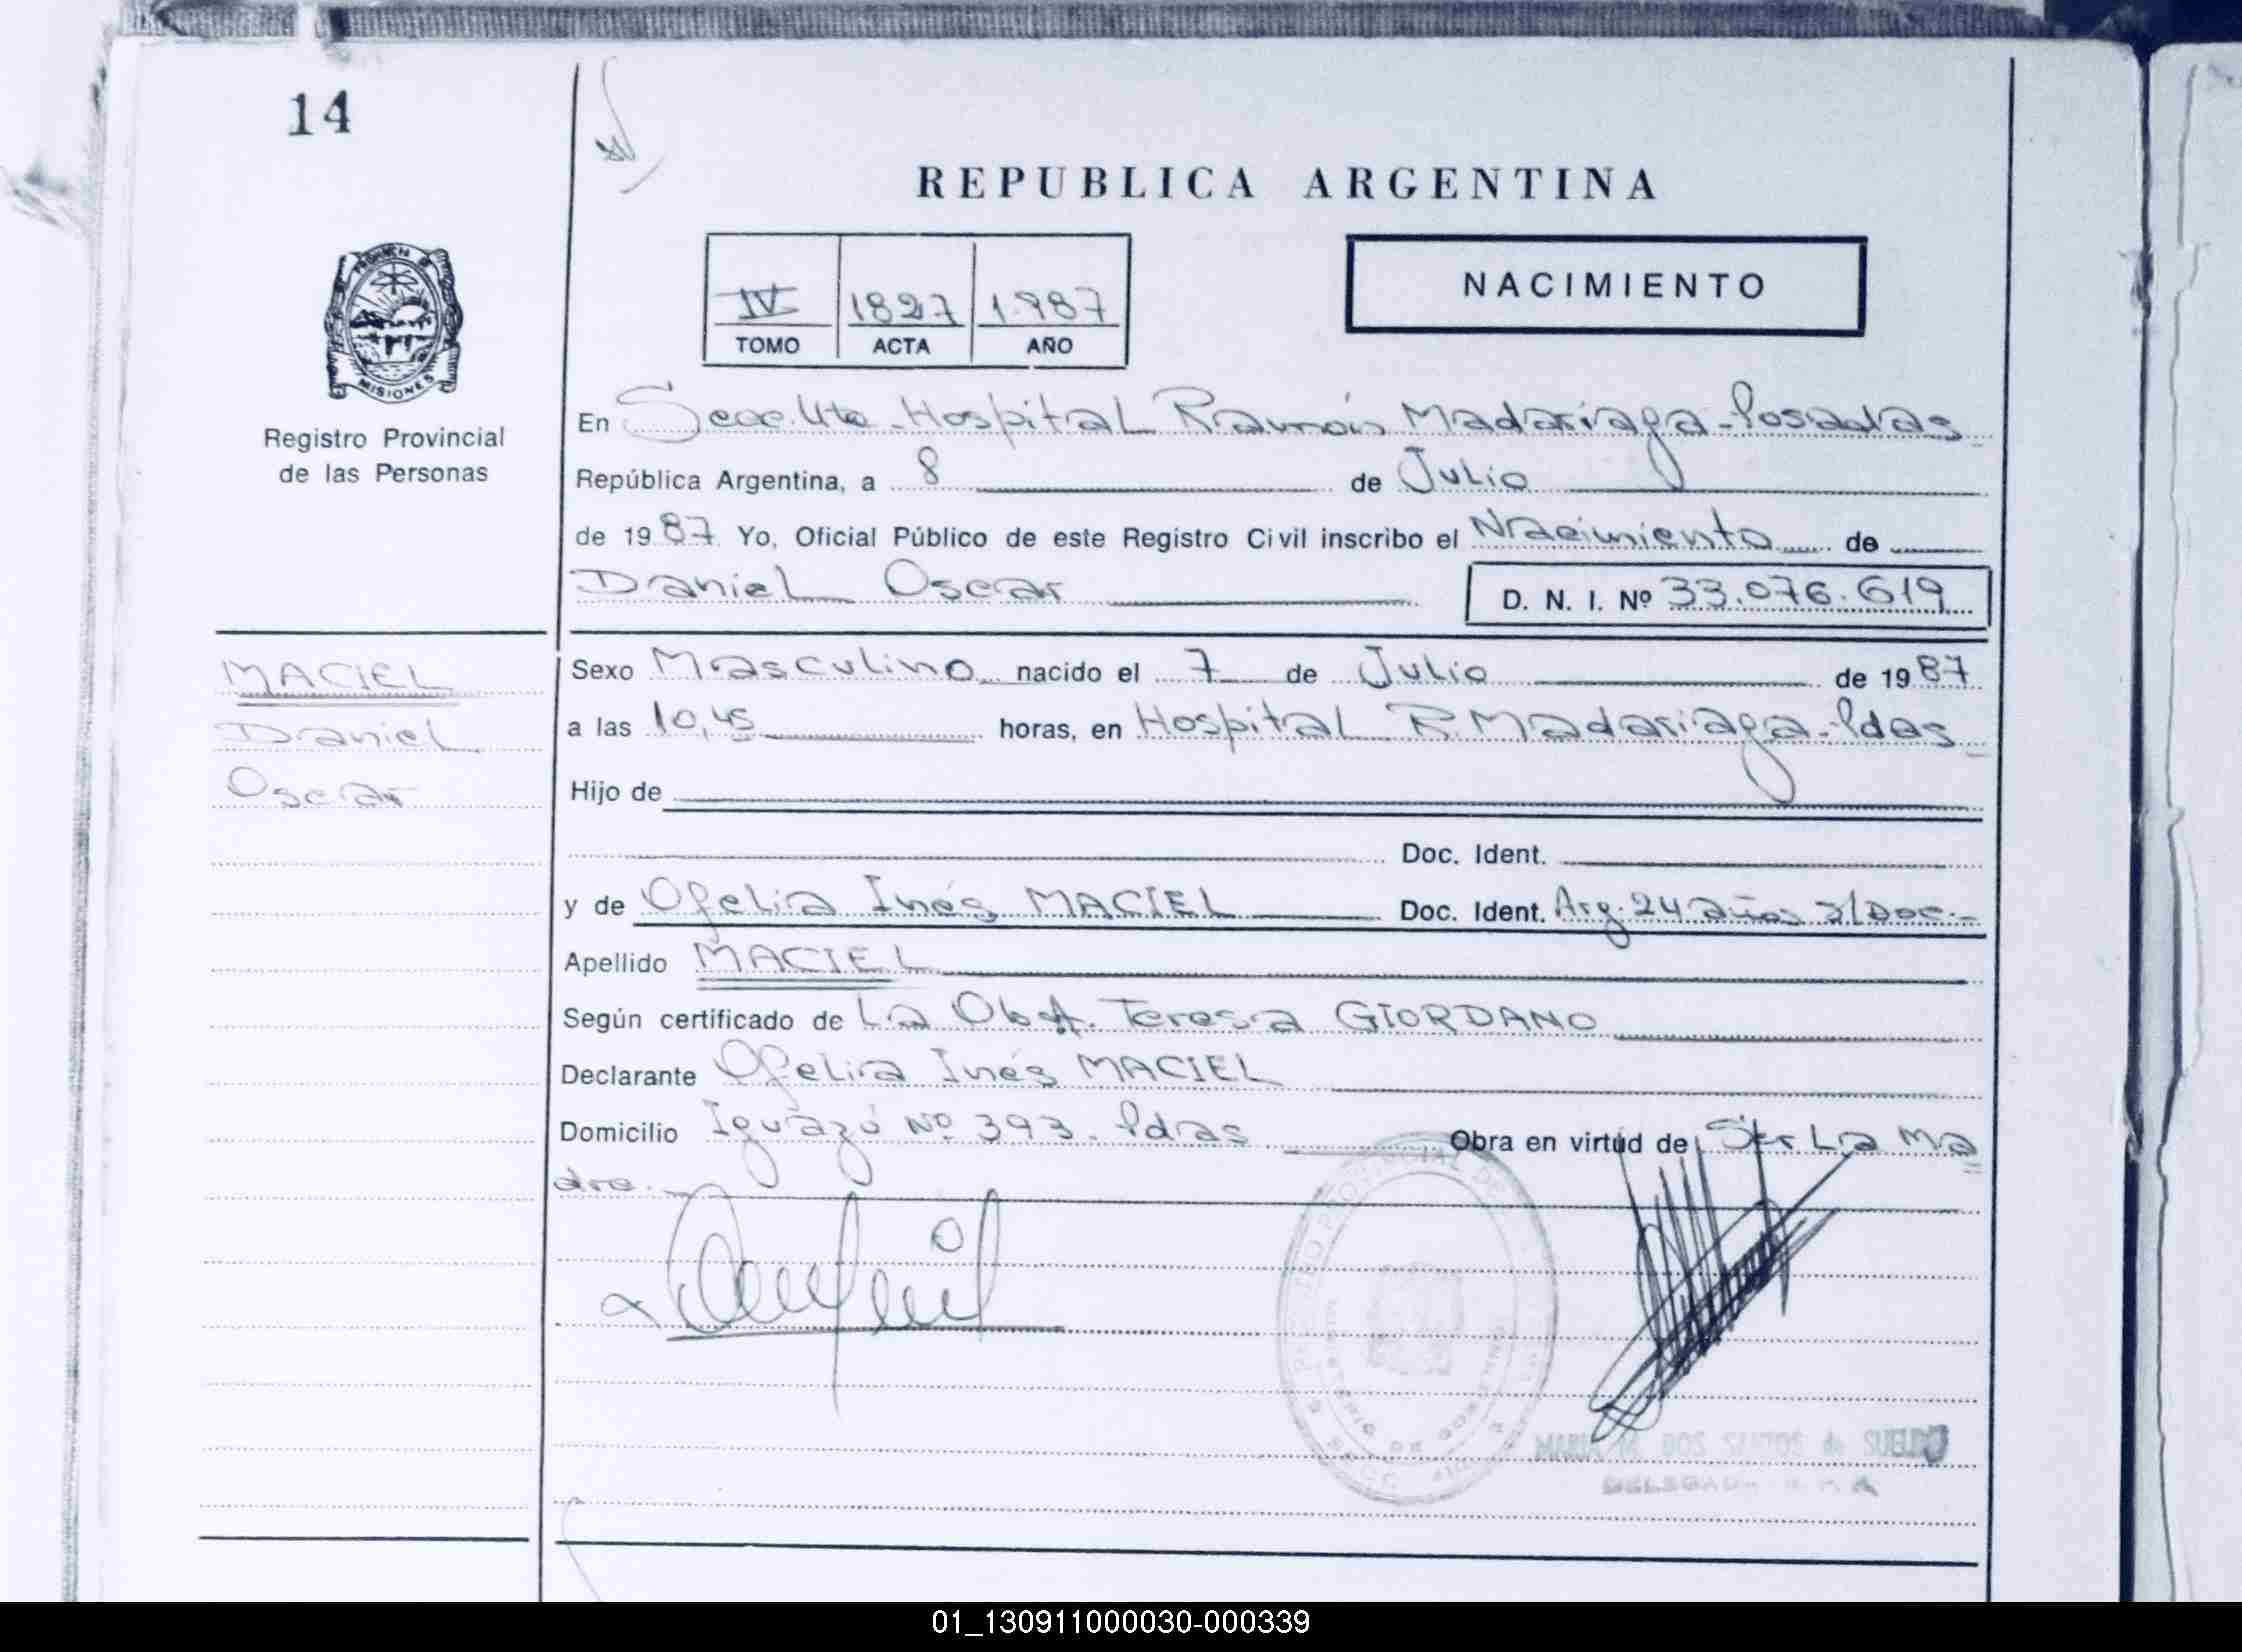 14
REPUBLICA ARGENTINA
IV 1827 1.987
TOMO ACTA AÑO
NACIMIENTO
PROVINCIA DE
MISIONES
Registro Provincial
de las Personas
En Secc. 4ta. Hospital Ramón Madariaga - Posadas
República Argentina, a 8 de Julio
de 1987 Yo, Oficial Público de este Registro Civil inscribo el Nacimiento de
Daniel Oscar D. N. I. Nº 33.076.619
MACIEL
Daniel
Oscar
Sexo Masculino nacido el 7 de Julio de 1987
a las 10,45 horas, en Hospital R. Madariaga - Pdas
Hijo de
Doc. Ident.
y de Ofelia Inés MACIEL Doc. Ident. Arg. 24 años s/Doc.-
Apellido MACIEL
Según certificado de La Obst. Teresa GIORDANO
Declarante Ofelia Inés MACIEL
Domicilio Iguazú Nº 393. Pdas Obra en virtud de Ser La Ma
dre.
MINISTERIO DE GOBIERNO
DOS SANTOS de
01_130911000030-000339